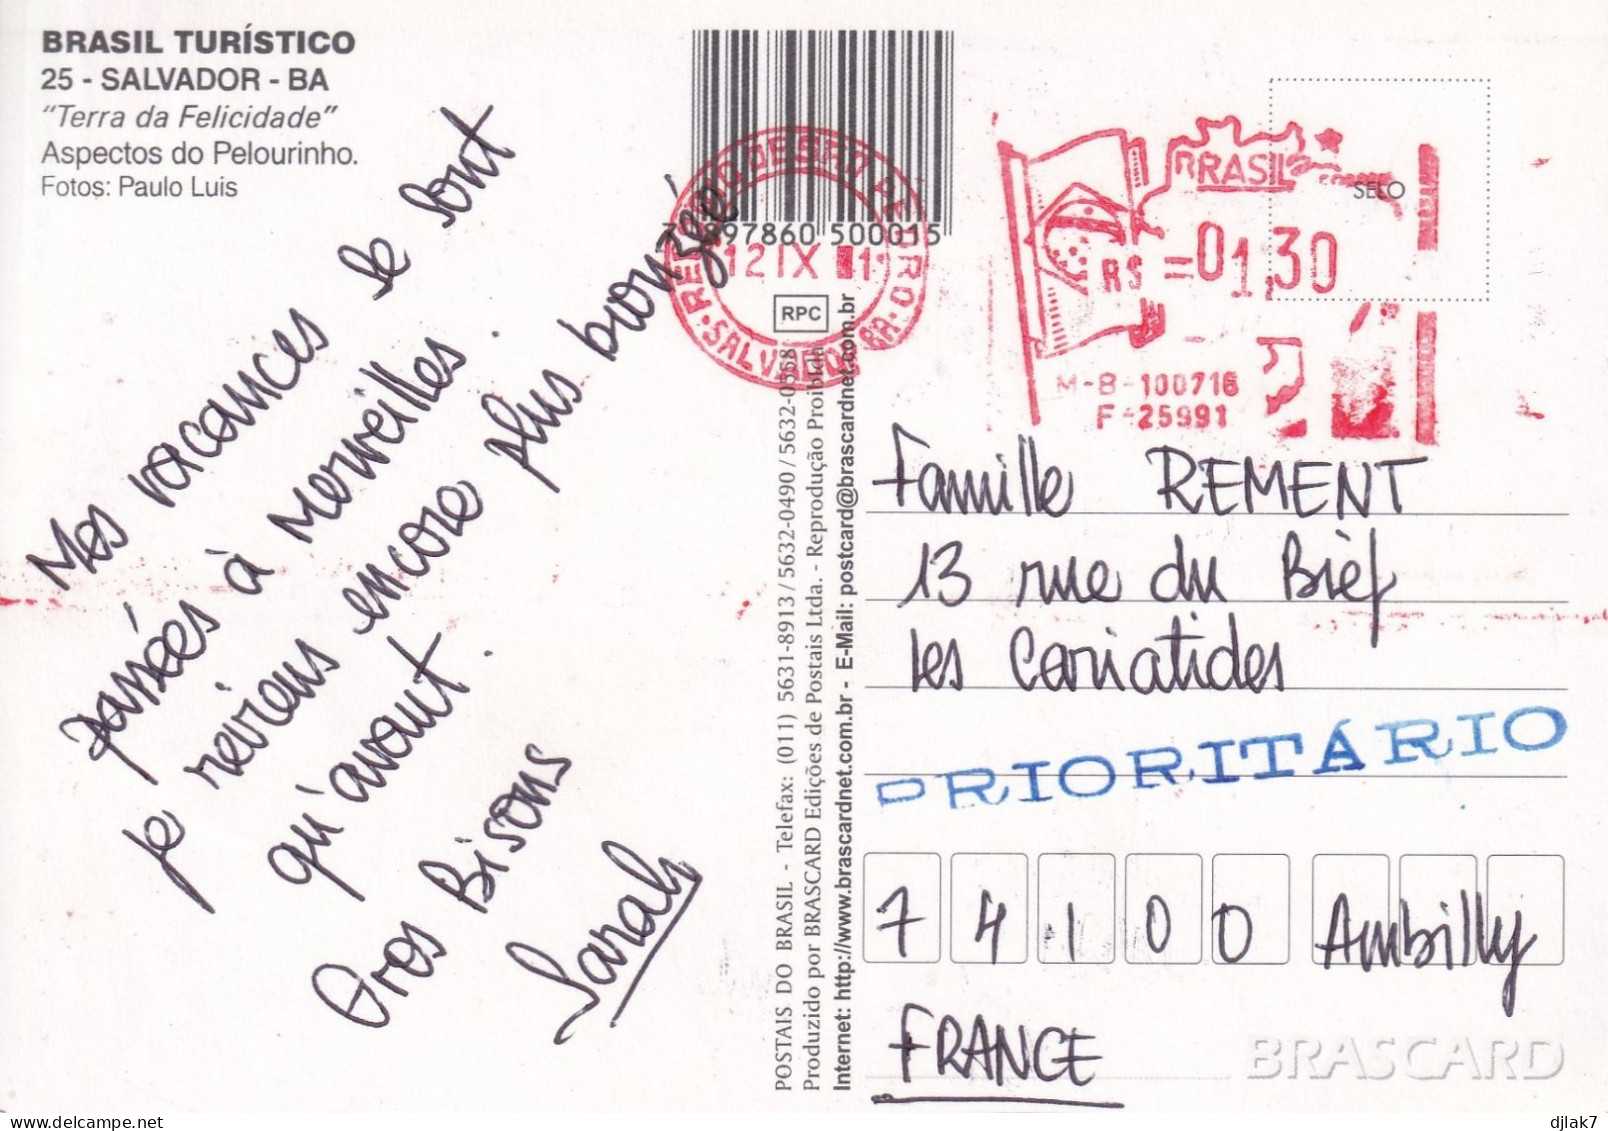 BRASIL TURÍSTICO
25 - SALVADOR - BA
"Terra da Felicidade"
Aspectos do Pelourinho.
Fotos: Paulo Luis
Mes vacances se sont
passées à Merveilles.
je reviens encore plus bronzée
qu'avant.
Gros Bisons
Sarah
7 897860 500015
SALVADOR BA
12 IX
RPC
BRASIL
SELO
R$ =01,30
M-B-100716
F-25991
POSTAIS DO BRASIL - Telefax: (011) 5631-8913 / 5632-0490 / 5632-0568
Produzido por BRASCARD Edições de Postais Ltda. - Reprodução Proibida
Internet: http://www.brascardnet.com.br - E-Mail: postcard@brascardnet.com.br
Famille REMENT
13 rue du Bief
les Cariatides
PRIORITÁRIO
74100 Ambilly
FRANCE
BRASCARD
djlak7